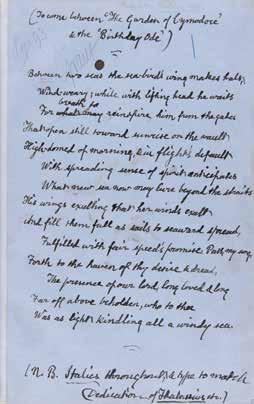 (To come between "The Garden of Cymodoce"
& the "Birthday Ode")
Between two seas the sea-bird's wing makes halt,
Wind-weary; while with lifting head he waits
breath to
For what may reinspire him from the gates
That open still toward sunrise on the vault
High-domed of morning, & in flight's default
With spreading sense of spirit anticipates
What new sea now may lure beyond the straits
His wings exulting that her winds exult
And fill them full as sails to seaward spread,
Fulfilled with fair speed's promise. Pass, my song,
Forth to the haven of thy desire & dread,
The presence of our lord, long loved & long
Far off above beholden, who to thee
Was as light kindling all a windy sea.
(N. B. Italics throughout, & type to match
Dedication of Thalassius, etc.)